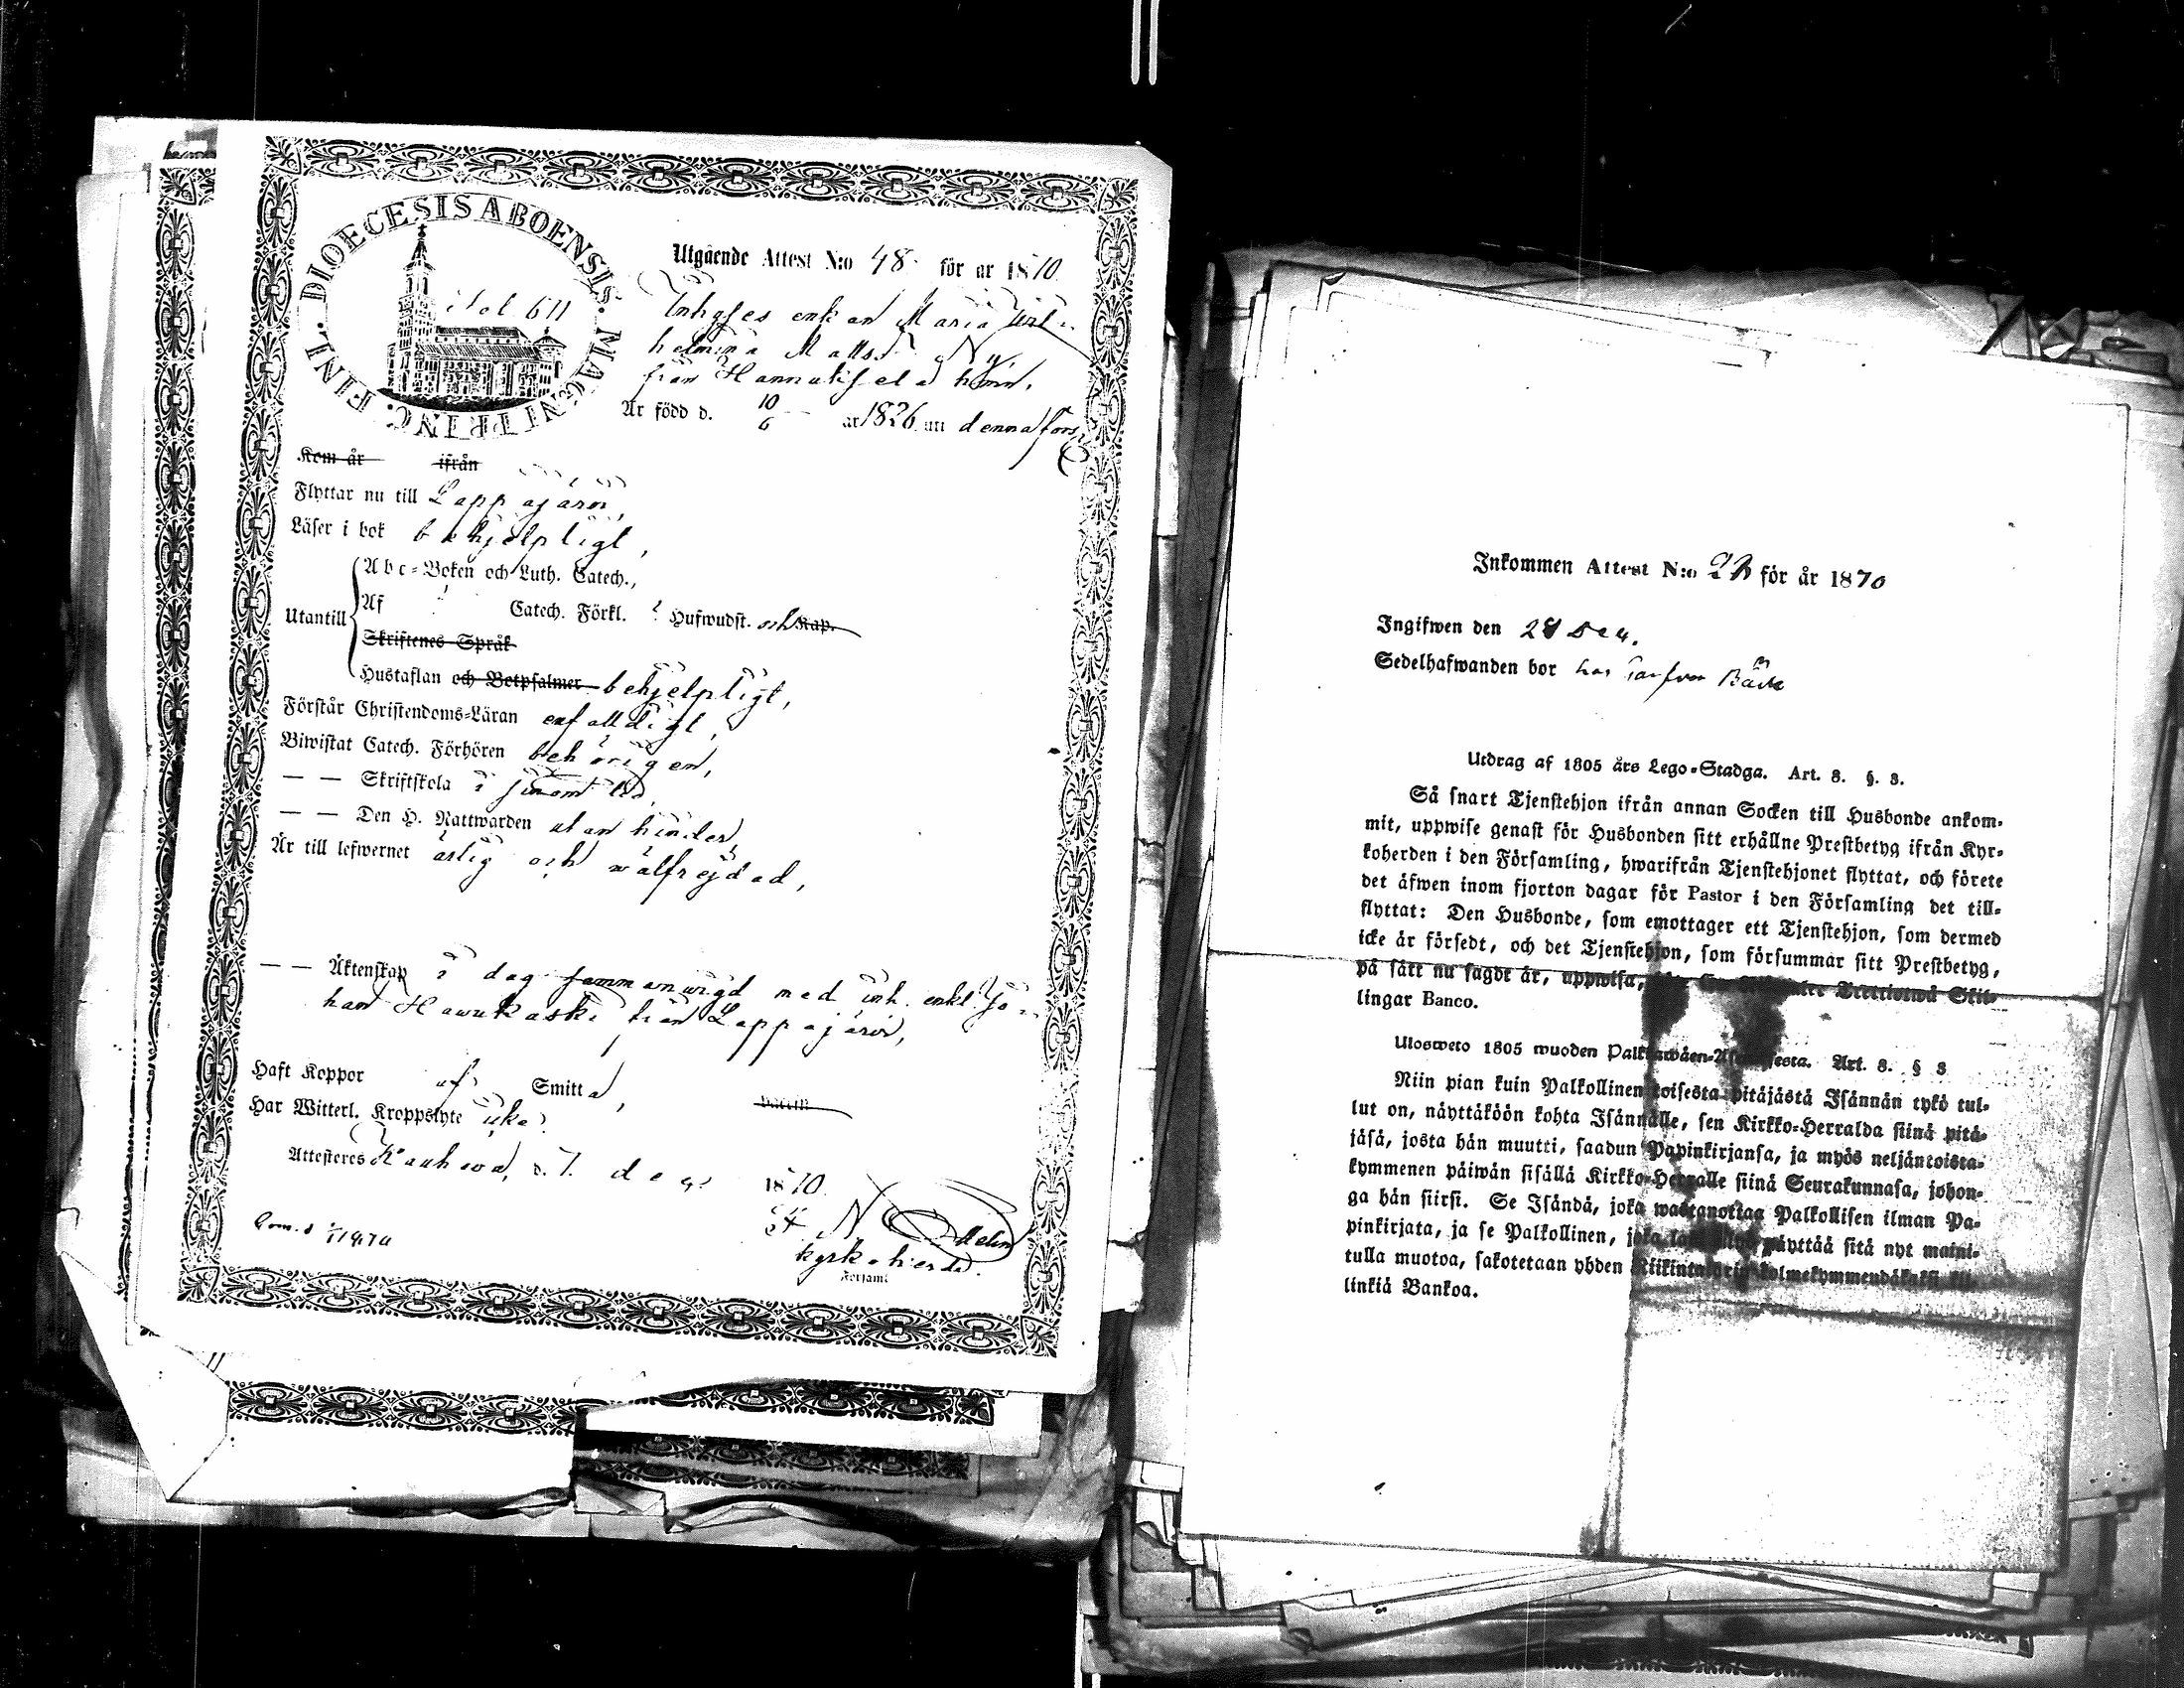 DIOECESIS ABOENSIS. MAGNI PRINC. FINL.
Utgående Attest N:o 48 för år 1870
enkan Maria Wil-
helmina Matsd:r Ny
från
Är född d. 10/6 år 1826 uti denna förs.
Kom år ifrån
Flyttar nu till Lappajärvi,
Läser i bok behjelpligt,
Utantill
Abc-Boken och Luth. Catech.,
Af Catech. Förkl. Hufwudst. och Kap.
Skriftenes Språk
Hustaflan och Botpsalmer behjelpligt,
Förstår Christendoms-Läran enfalldigt,
Biwistat Catech. Förhören behörigen,
— — Skriftskola i
— — Den H. Nattwarden utan hinder,
Är till lefwernet ärlig och wälfrejdad,
— — Äktenskap i dag sammanwigd med inh. enkl. Jo-
han från Lappajärvi,
Haft Koppor af Smitta,
Har Witterl. Kroppslyte icke.
Attesteras Kauhava, d. 7 dec. 1870.
N
Kyrkoherde.
Församl
Inkommen Attest N:o för år 1870
Ingifwen den 28 Dec.
Sedelhafwanden bor hos
Utdrag af 1805 års Lego-Stadga. Art. 8. §. 3.
Så snart Tjenstehjon ifrån annan Socken till Husbonde ankom-
mit, uppwise genast för Husbonden sitt erhållne Prestbetyg ifrån Kyr-
koherden i den Församling, hwarifrån Tjenstehjonet flyttat, och förete
det äfwen inom fjorton dagar för Pastor i den Församling det till-
flyttat: Den Husbonde, som emottager ett Tjenstehjon, som dermed
icke är försedt, och det Tjenstehjon, som försummar sitt Prestbetyg,
på sätt nu sagdt är, uppwisa, Skil-
lingar Banco.
Ulosweto 1805 wuoden Art. 8. § 3
Niin pian kuin Palkollinen toisesta pitäjästä Isännän tykö tul-
lut on, näyttäköön kohta Isännälle, sen Kirkko-Herralda siinä pitä-
jäsä, josta hän muutti, saadun Papinkirjansa, ja myös neljäntoista-
kymmenen päiwän sisällä Kirkko-Herralle siinä Seurakunnasa, johon-
ga hän siirsi. Se Isändä, joka wastanottaa Palkollisen ilman Pa-
pinkirjata, ja se Palkollinen, joka näyttää sitä nyt maini-
tulla muotoa, sakotetaan yhden kolmekymmendäkaksi kil-
linkiä Bankoa.